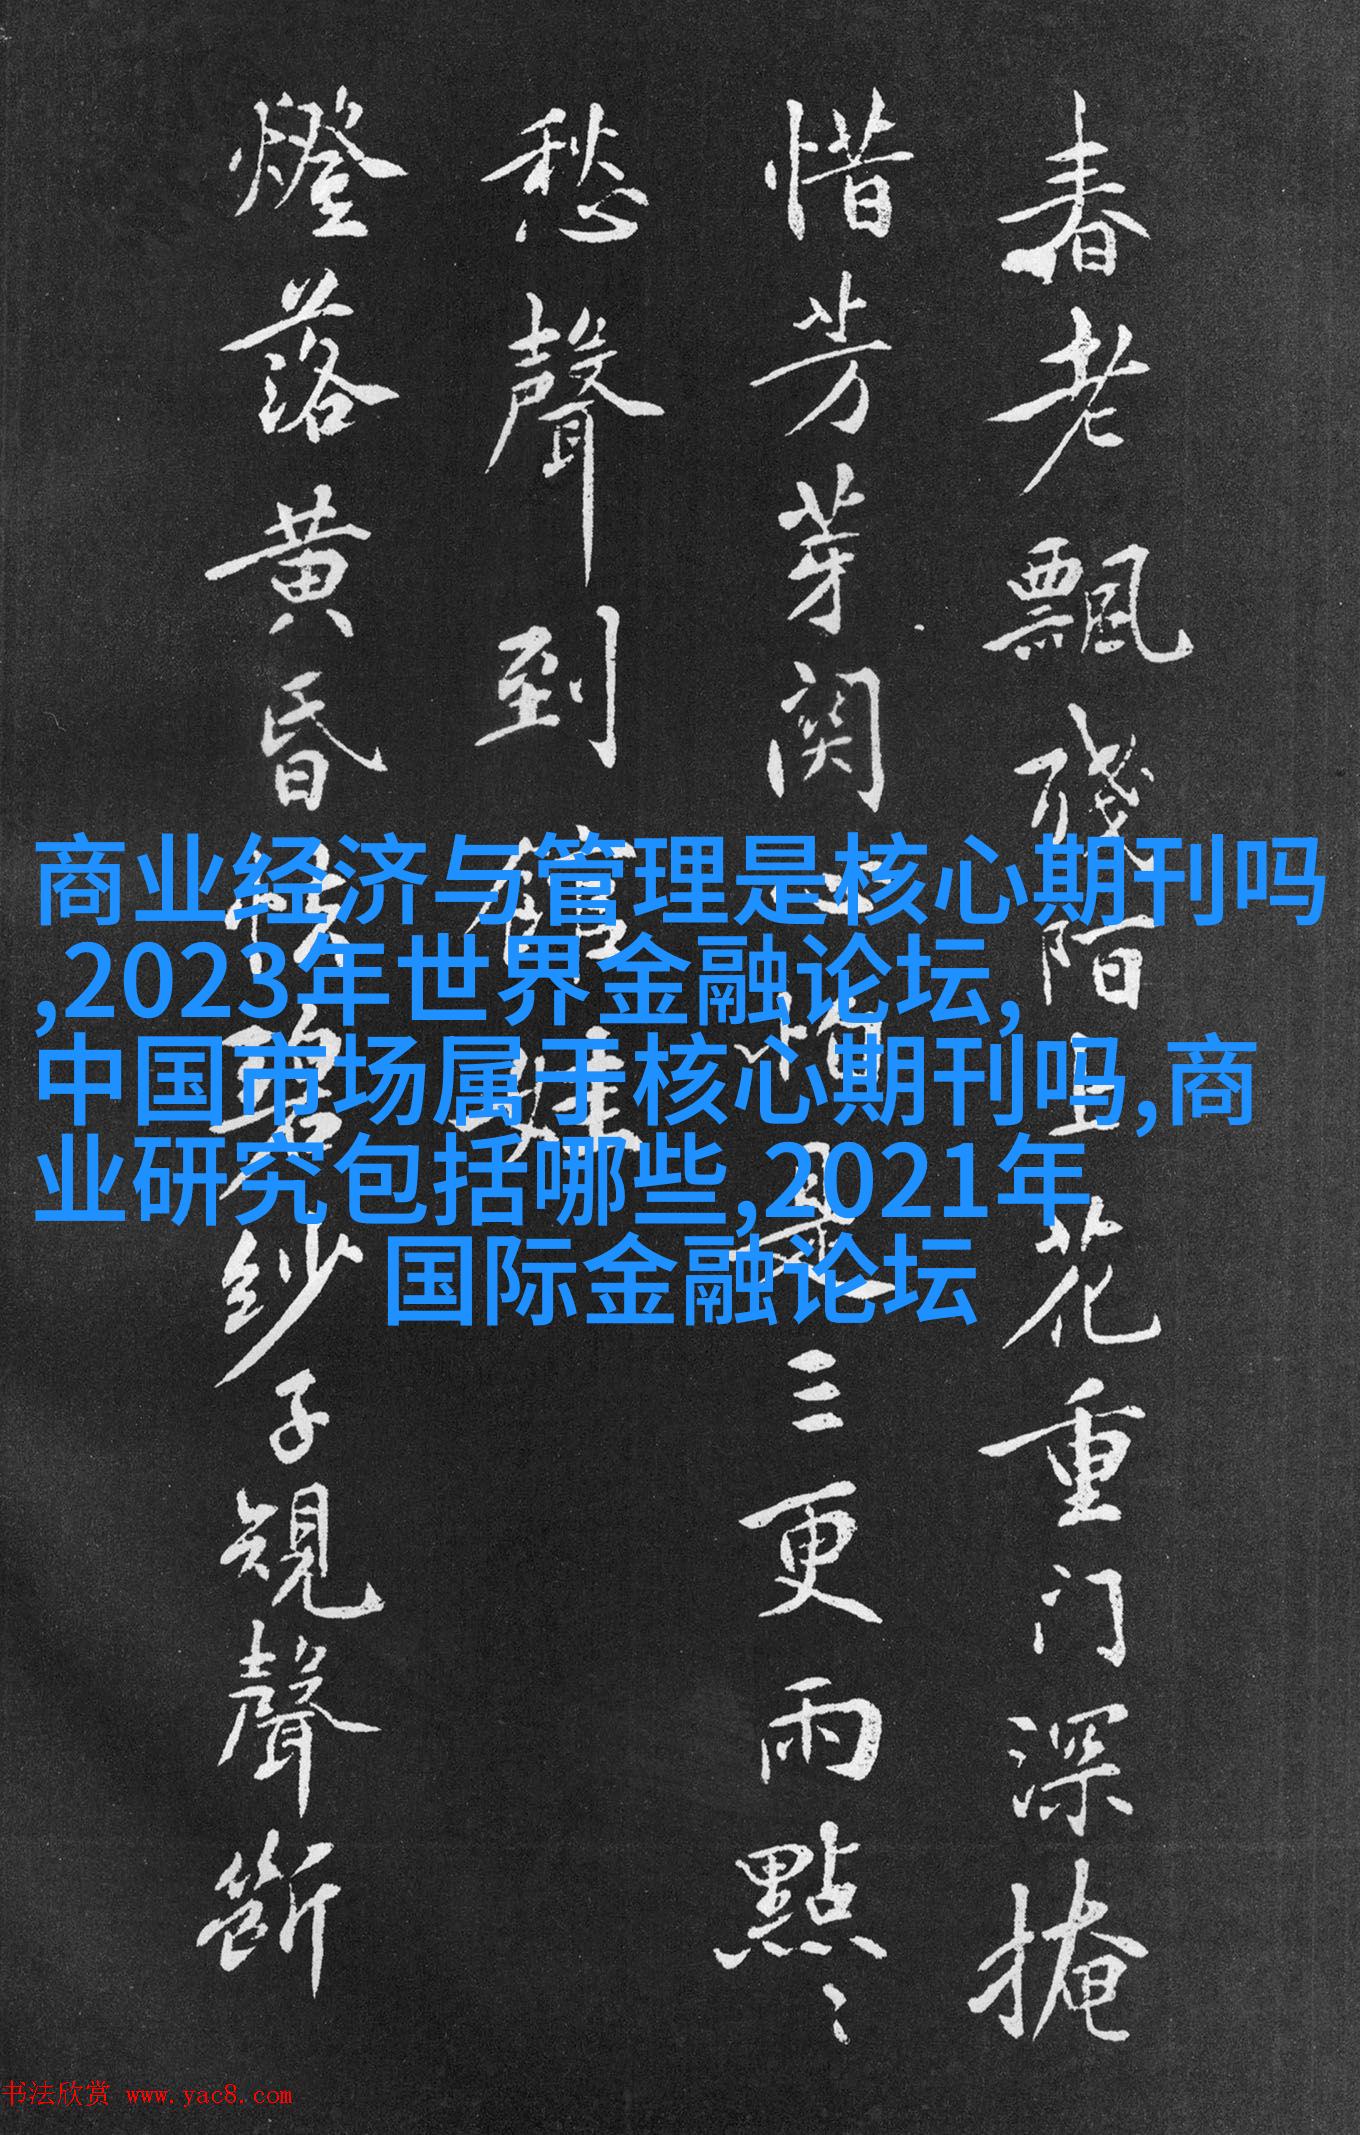 春老飄殘陌上花重门深掩
惜芳芽関心怕是三更雨點〻
愁聲到館娃
燈落黄昏碧紗子規聲斷
商业经济与管理是核心期刊吗
,2023年世界金融论坛,
中国市场属于核心期刊吗,商
业研究包括哪些,2021年
国际金融论坛
书法欣赏 www.yac8.com